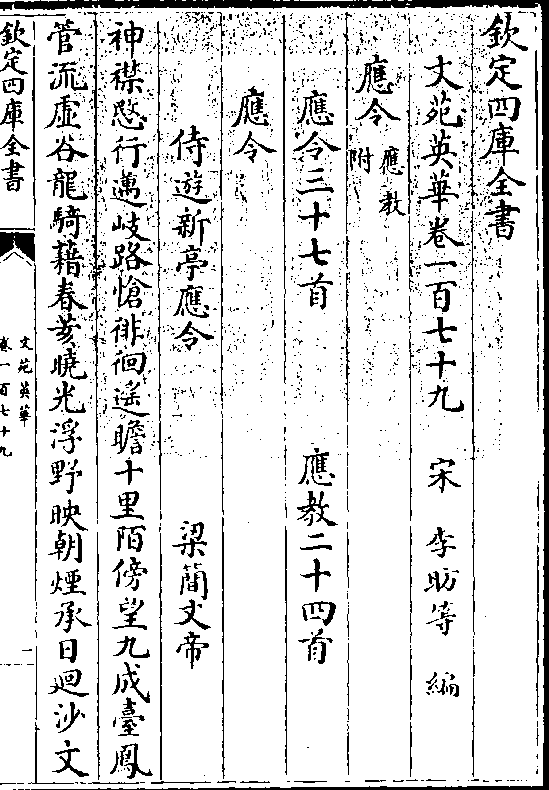 欽定四庫全書
文苑英華卷一百七十九　宋　李昉等　編
應令應教附
應令三十七首　應教二十四首
應令
侍遊新亭應令　梁簡文帝
神襟愍行邁岐路愴徘徊遙瞻十里陌傍望九成臺鳳
管流虛谷龍騎藉春荄曉光浮野映朝煙承日迴沙文
欽定四庫全書
文苑英華
卷一百七十九
一